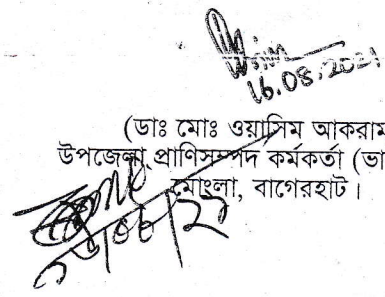 16.08.2021
(ডাঃ মোঃ ওয়াসিম আকরাম
উপজেলা প্রাণিসম্পদ কর্মকর্তা (ভা
মোংলা, বাগেরহাট।